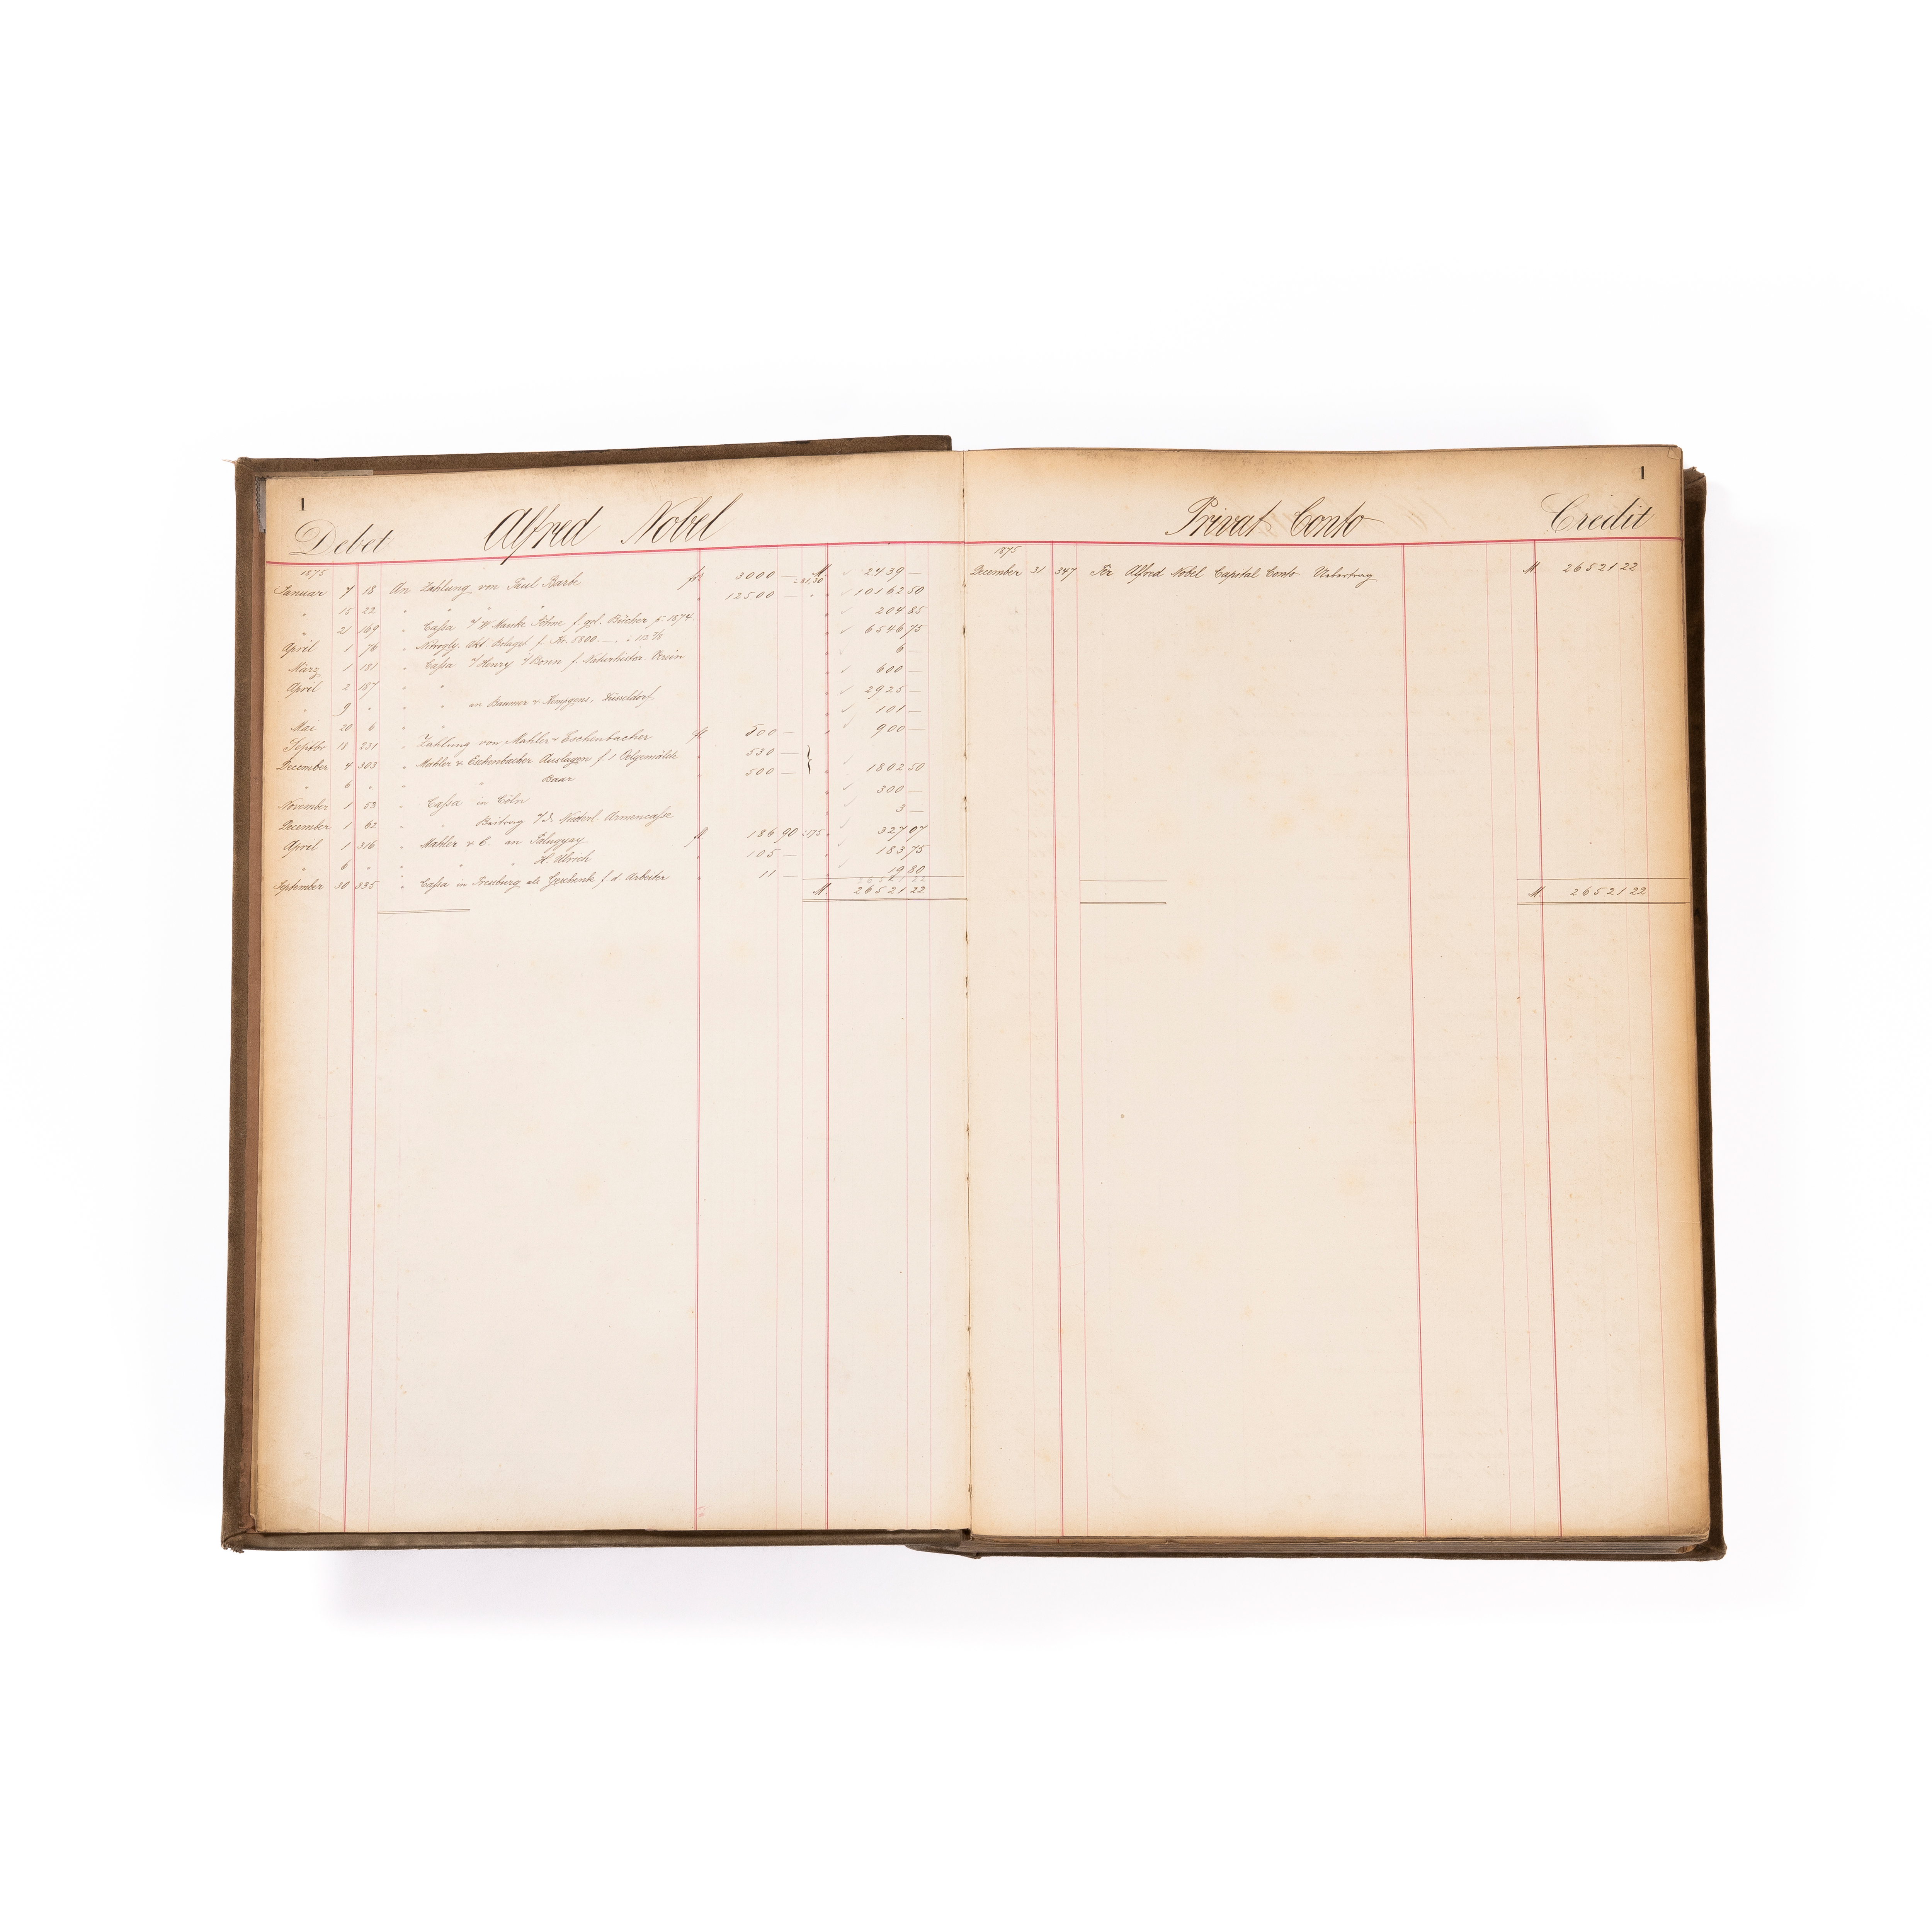 1
Debet Alfred Nobel
1875
Januar 7 18 An Zahlung von Paul Barbe frs 3000 — : 81,30 M. 2439 —
" 15 22 " " " " " 12500 — " " 10162 50
" 21 169 " Cassa Söhne f. gel. Bücher p. 1874 " 204 85
April 1 76 " Nitrogly. Akt Bolaget f. Kr. 5800. — : 112 7/8 " 6546 75
März 1 181 " Cassa Henry Bonn f. Naturhistor. Verein " 6 —
April 2 187 " " " 600 —
" 9 " " " " an Düsseldorf. " 2925 —
Mai 20 6 " " " 101 —
Septbr 18 231 " Zahlung von Mahler & Eschenbacher fl 500 — " 900 —
December 4 303 " Mahler & Eschenbacher Auslagen f. 1 Oelgemälde " 530 —
" 6 " " " " Baar " 500 — } " 1802 50
November 1 53 " Cassa in Cöln 300 —
December 1 62 " " Beitrag Armencasse 3 —
April 1 316 " Mahler & E. an fl 186 90 : 175 " 327 07
" 6 " " " " H. Ulrich " 105 — " 183 75
September 30 335 " Cassa in als Geschenk f. d. Arbeiter " 11 — 19 80
26521 22
M. 26521 22
1
Privat Conto Credit
1875
December 31 347 Per Alfred Nobel Capital Conto Uebertrag M. 26521 22
M. 26521 22